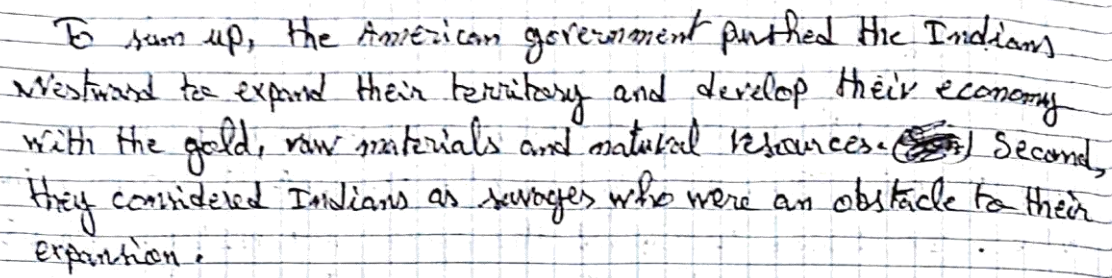 To sum up, the American government pushed the Indians
Westward to expand their territory and develop their economy
with the gold, raw materials and natural resources. Second,
they considered Indians as savages who were an obstacle to their
expansion.